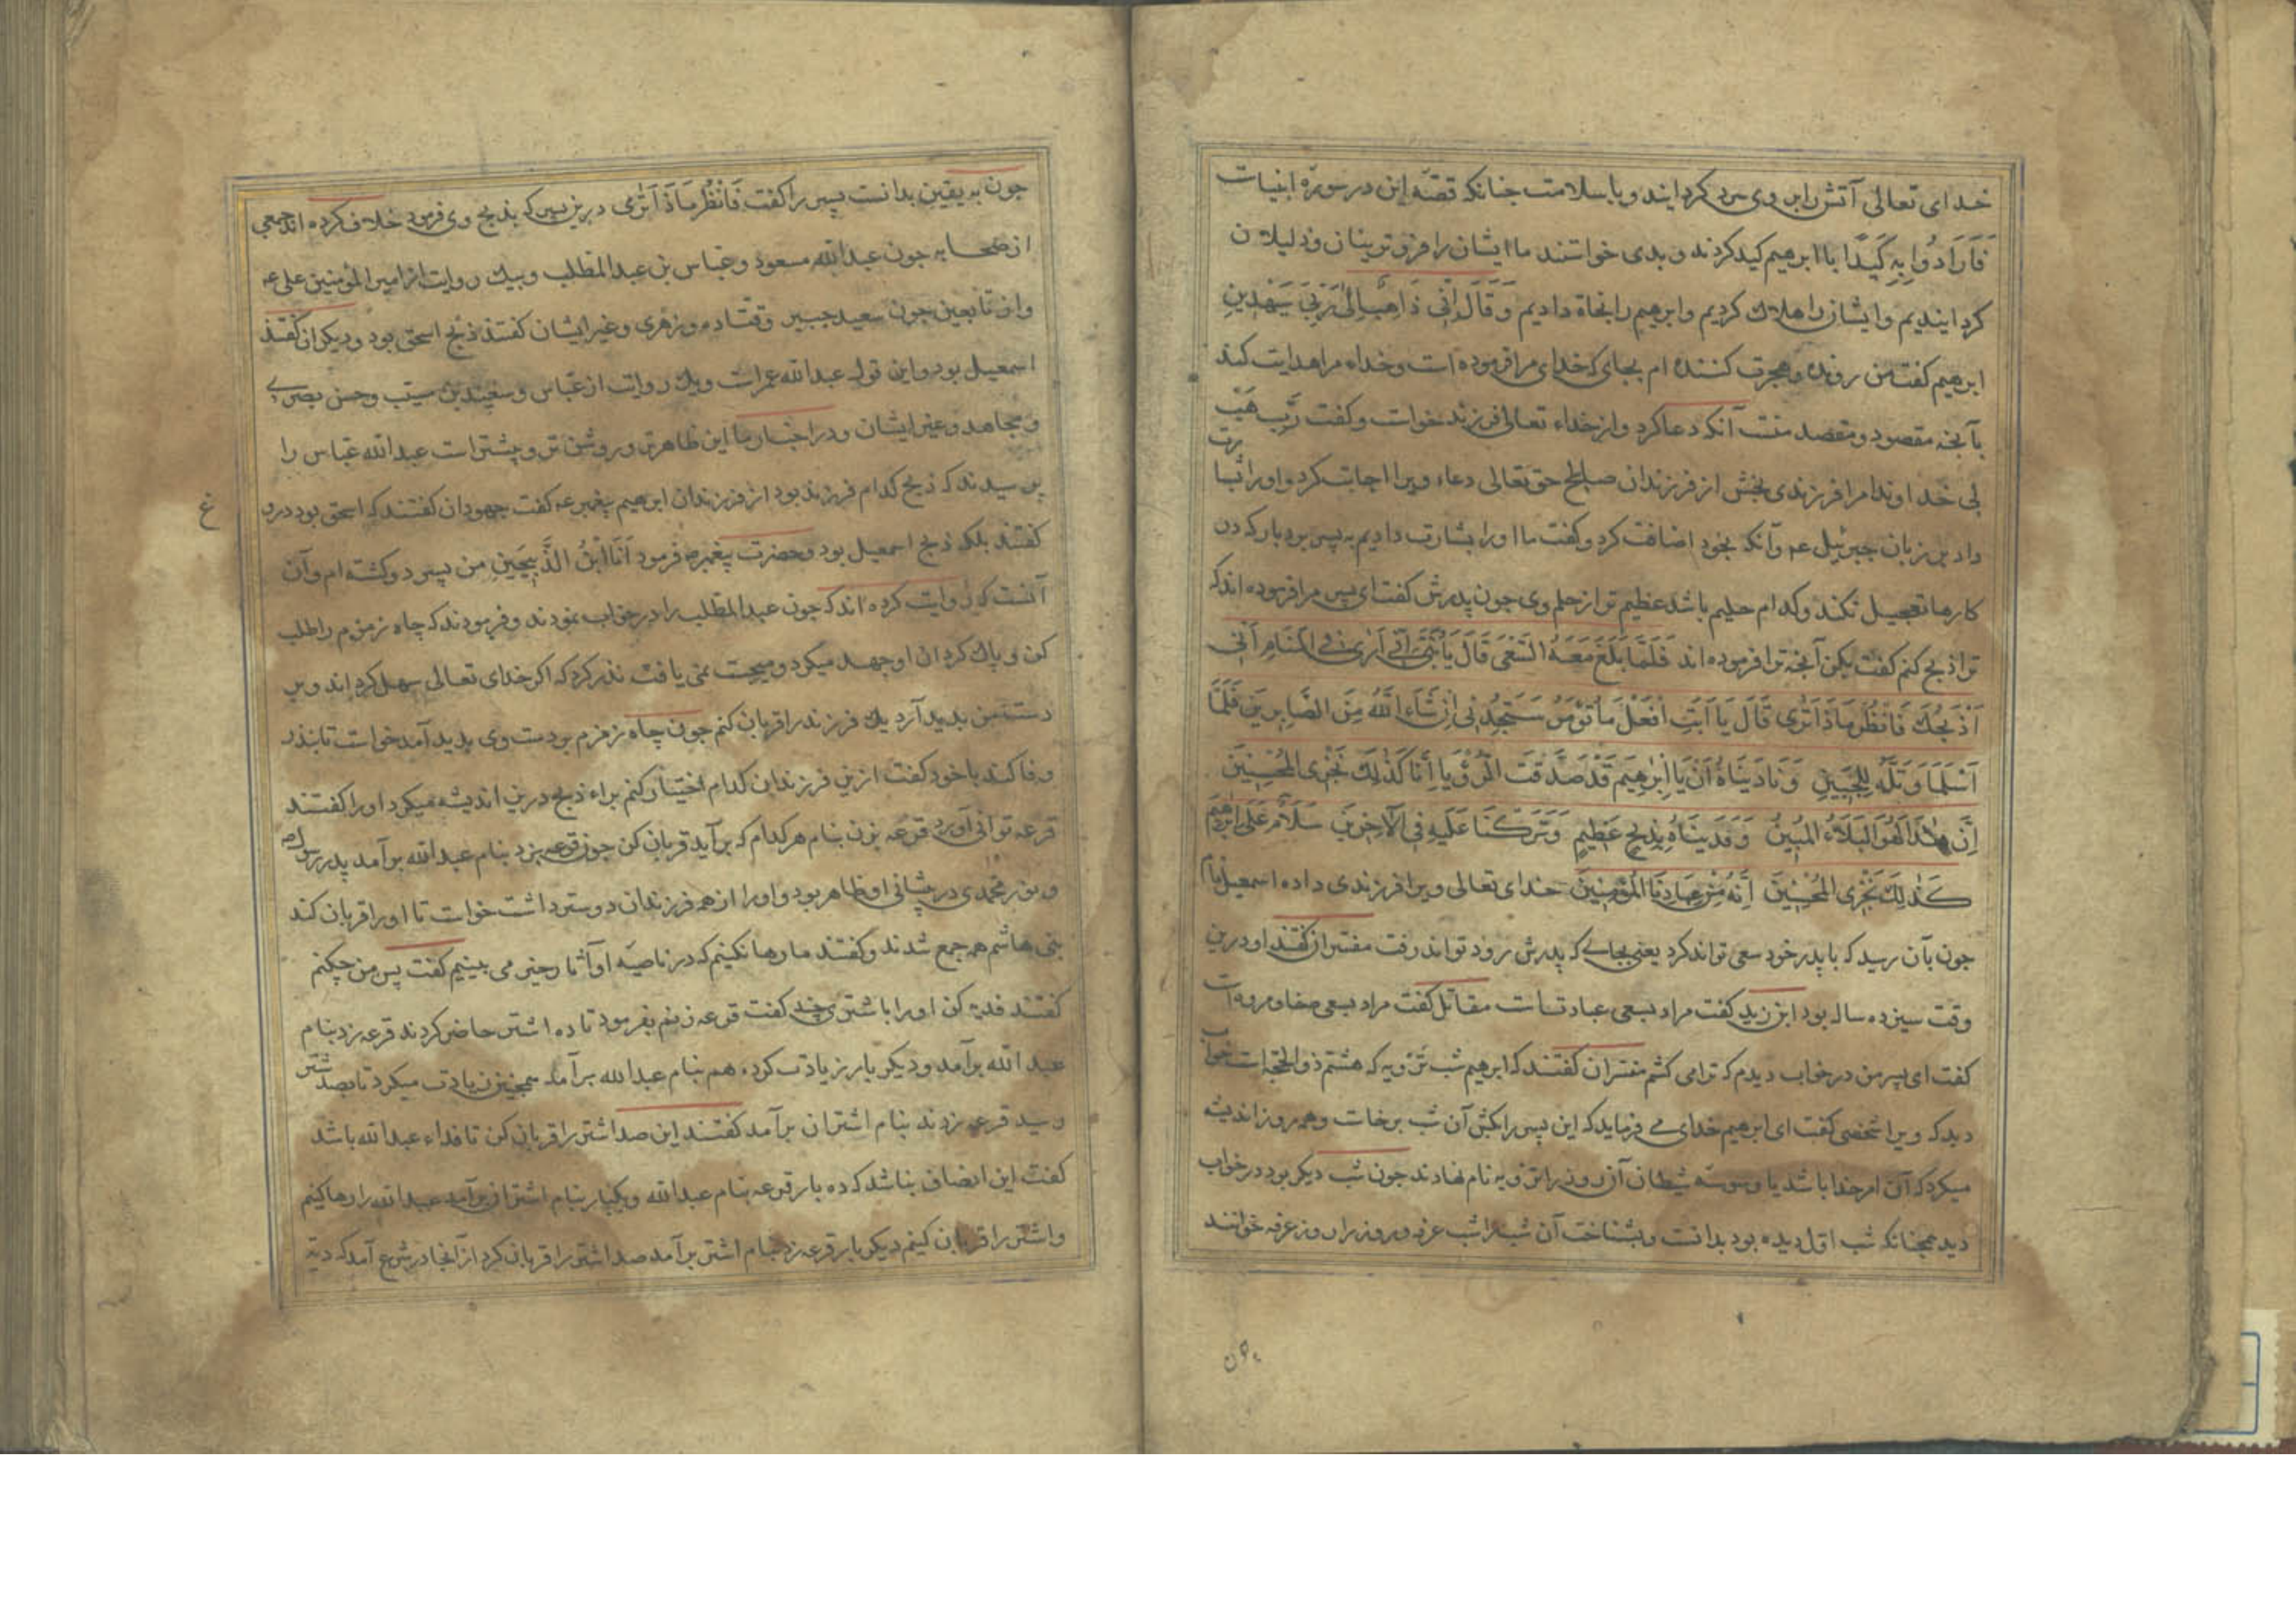 خدای تعالی آتش را بر وی سرد گردانید و با سلامت جنانکه قصّه این در سورة انبیات
فَاَرَادُوا بِهِ كَيْدًا با ابرهیم کید کردند و بدی خواستند ما ایشان را فروتر بنان و ذلیلان
کردانیدیم و ایشان را هلاك کردیم و ابرهیم را نجاة دادیم وَقَالَ اِنّی ذَاهِبٌ اِلٰی رَبّیَ سَیَهْدِینِ
ابرهیم کفت من رونده و هجرت کننده ام بجای که خدای مرا فرموده است و خداء مرا هدایت کند
بآنجه مقصود و مقصد منت آنکه دعا کرد و از خداء تعالی فرزند خواست و کفت رَبِّ هَبْ
لی خداوندا مرا فرزندی بخش از فرزندان صالح حق تعالی دعاء ویرا اجابت کرد و او را
داد بر زبان جبرئیل عم و آنکه بخود اضافت کرد و کفت ما او را بشارت دادیم به پسر بردبار که در
کارها تعجیل نکند و کدام حلیم باشد عظیم تر از حلم وی جون پدرش کفت ای پسر مرا فرموده اند که
ترا ذبح کنم کفت بکن آنجه ترا فرموده اند فَلَمَّا بَلَغَ مَعَهُ السَّعْیَ قَالَ یَا بُنَیَّ اِنّی اَرٰی فِی الْمَنَامِ اَنّی
اَذْبَحُكَ فَانْظُرْ مَاذَا تَرٰی قَالَ یَا اَبَتِ افْعَلْ مَا تُؤْمَرُ سَتَجِدُنی اِنْ شَاءَ اللّٰهُ مِنَ الصَّابِرینَ فَلَمَّا
اَسْلَمَا وَ تَلَّهُ لِلْجَبینِ وَنَادَیْنَاهُ اَنْ یَا اِبْرٰهِیمُ قَدْ صَدَّقْتَ الرُّؤْیَا اِنَّا كَذٰلِكَ نَجْزِی الْمُحْسِنینَ
اِنَّ هٰذَا لَهُوَ الْبَلَاءُ الْمُبینُ وَفَدَیْنَاهُ بِذِبْحٍ عَظیمٍ وَتَرَكْنَا عَلَیْهِ فِی الْآخِرینَ سَلَامٌ عَلٰی اِبْرٰهیمَ
كَذٰلِكَ نَجْزِی الْمُحْسِنینَ اِنَّهُ مِنْ عِبَادِنَا الْمُؤْمِنینَ خدای تعالی ویرا فرزندی داده اسمعیل نام
جون بآن رسید که با پدر خود سعی تواند کرد یعنی بجایی که پدرش رود تواند رفت مفسران کفتند او درین
وقت سیزده ساله بود ابن زید کفت مراد بسعی عبادتست مقاتل کفت مراد بسعی صفا و مروه است
کفت ای پسر من در خواب دیدم که ترا می کشم مفسران کفتند که ابرهیم شب ترویه که هشتم ذوالحجّه است خواب
دید که ویرا شخصی کفت ای ابرهیم خدای می فرماید که این پسر را بکش آن شب برخاست و همه روز اندیشه
میکرد که آن امر خدا باشد یا وسوسه شیطان آن روز را ترویه نام نهادند جون شب دیکر بود در خواب
دید همجنانکه شب اول دیده بود بدانست و بشناخت آن شب را شب عرفه و روز را روز عرفه خوانند
جون
جون به یقین بدانست پسر را کفت فَانْظُرْ مَاذَا تَرٰی درین پسر که بذبح وی فرمود خلاف کرده اند جمعی
از صحابه جون عبدالله مسعود و عباس بن عبدالمطلب و بیك روایت از امیرالمؤمنین علی عم
و از تابعین جون سعید جبیر و قتاده و زهری و غیر ایشان کفتند ذبح اسحق بود و دیکران کفتند
اسمعیل بود و این قول عبدالله عمرست و یك روایت از عبّاس و سعید بن مسیّب و حسن بصری
و مجاهد و غیر ایشان و در اخبار ما این ظاهرتر و روشن تر و بیشترست عبدالله عبّاس را
پرسیدند که ذبیح کدام فرزند بود از فرزندان ابرهیم پیغمبر عم کفت جهودان کفتند که اسحق بود دروغ
کفتند بلکه ذبیح اسمعیل بود و حضرت پیغمبر ص فرمود اَنَا ابْنُ الذَّبِیحَینِ من پسر دو کشته ام و آن
آنست که روایت کرده اند که جون عبدالمطلب را در خواب نمودند و فرمودند که چاه زمزم را طلب
کن و پاك کردان او جهد میکرد و میجست نمی یافت نذر کرد که اکر خدای تعالی سهل کرداند و بر
دست من بدید آرد یك فرزند را قربان کنم جون چاه زمزم بر دست وی بدید آمد خواست تا بنذر
وفا کند با خود کفت ازین فرزندان کدام اختیار کنم براء ذبح درین اندیشه میکرد او را کفتند
قرعه توانی آورد قرعه بزن بنام هر کدام که برآید قربان کن جون قرعه بزد بنام عبدالله برآمد پدر رسول ص
و نور محمدی در پیشانی او ظاهر بود و او را از همه فرزندان دوستر داشت خواست تا او را قربان کند
بنی هاشم همه جمع شدند و کفتند ما رها نکنیم که در ناصیه او آثار خیر می بینیم کفت پس من چکنم
کفتند فدیه کن او را باشتری چند کفت قرعه زنم بفرمود تا ده اشتر حاضر کردند قرعه زد بنام
عبدالله برآمد و دیکر بار زیادت کرد هم بنام عبدالله برآمد همجنین زیادت میکرد تا بصد شتر
رسید قرعه زدند بنام اشتران برآمد کفتند این صد اشتر را قربان کن تا فداء عبدالله باشد
کفت این انصاف نباشد که ده بار قرعه بنام عبدالله و یکبار بنام اشتران برآمد عبدالله را رها کنیم
و اشتر را قربان کنیم دیکر بار قرعه زد بنام اشتر برآمد صد اشتر را قربان کرد از آنجا در شرع آمد که دیّة